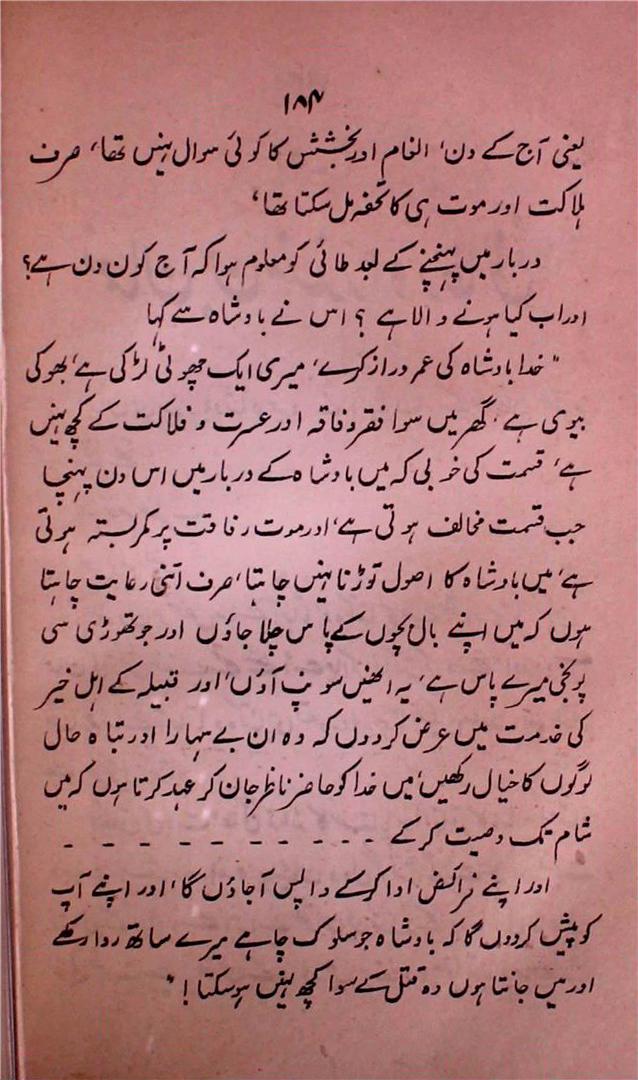 ۱۸۴
یعنی آج کے دن، انعام اور بخشش کا کوئی سوال نہیں تھا، صرف
ہلاکت اور موت ہی کا تحفہ مل سکتا تھا،
دربار میں پہنچنے کے بعد طائی کو معلوم ہوا کہ آج کون دن ہے؟
اور اب کیا ہونے والا ہے؟ اس نے بادشاہ سے کہا
"خدا بادشاہ کی عمر دراز کرے، میری ایک چھوٹی لڑکی ہے، بھوکی
بیوی ہے، گھر میں سوا فقر و فاقہ اور عسرت و فلاکت کے کچھ نہیں
ہے، قسمت کی خوبی کہ میں بادشاہ کے دربار میں اس دن پہنچا
جب قسمت مخالف ہوتی ہے، اور موت رفاقت پر کمر بستہ ہوتی
ہے، میں بادشاہ کا اصول توڑنا نہیں چاہتا، صرف اتنی رعایت چاہتا
ہوں کہ میں اپنے بال بچوں کے پاس چلا جاؤں اور جو تھوڑی سی
پونجی میرے پاس ہے، یہ انھیں سونپ آؤں، اور قبیلہ کے اہل خیر
کی خدمت میں عرض کر دوں کہ وہ ان بے سہارا اور تباہ حال
لوگوں کا خیال رکھیں، میں خدا کو حاضر ناظر جان کر عہد کرتا ہوں کہ میں
شام تک وصیت کر کے - - - - - - - - - -
اور اپنے فرائض ادا کر کے واپس آجاؤں گا، اور اپنے آپ
کو پیش کر دوں گا کہ بادشاہ جو سلوک چاہے میرے ساتھ روا رکھے
اور میں جانتا ہوں وہ قتل کے سوا کچھ نہیں ہو سکتا!"